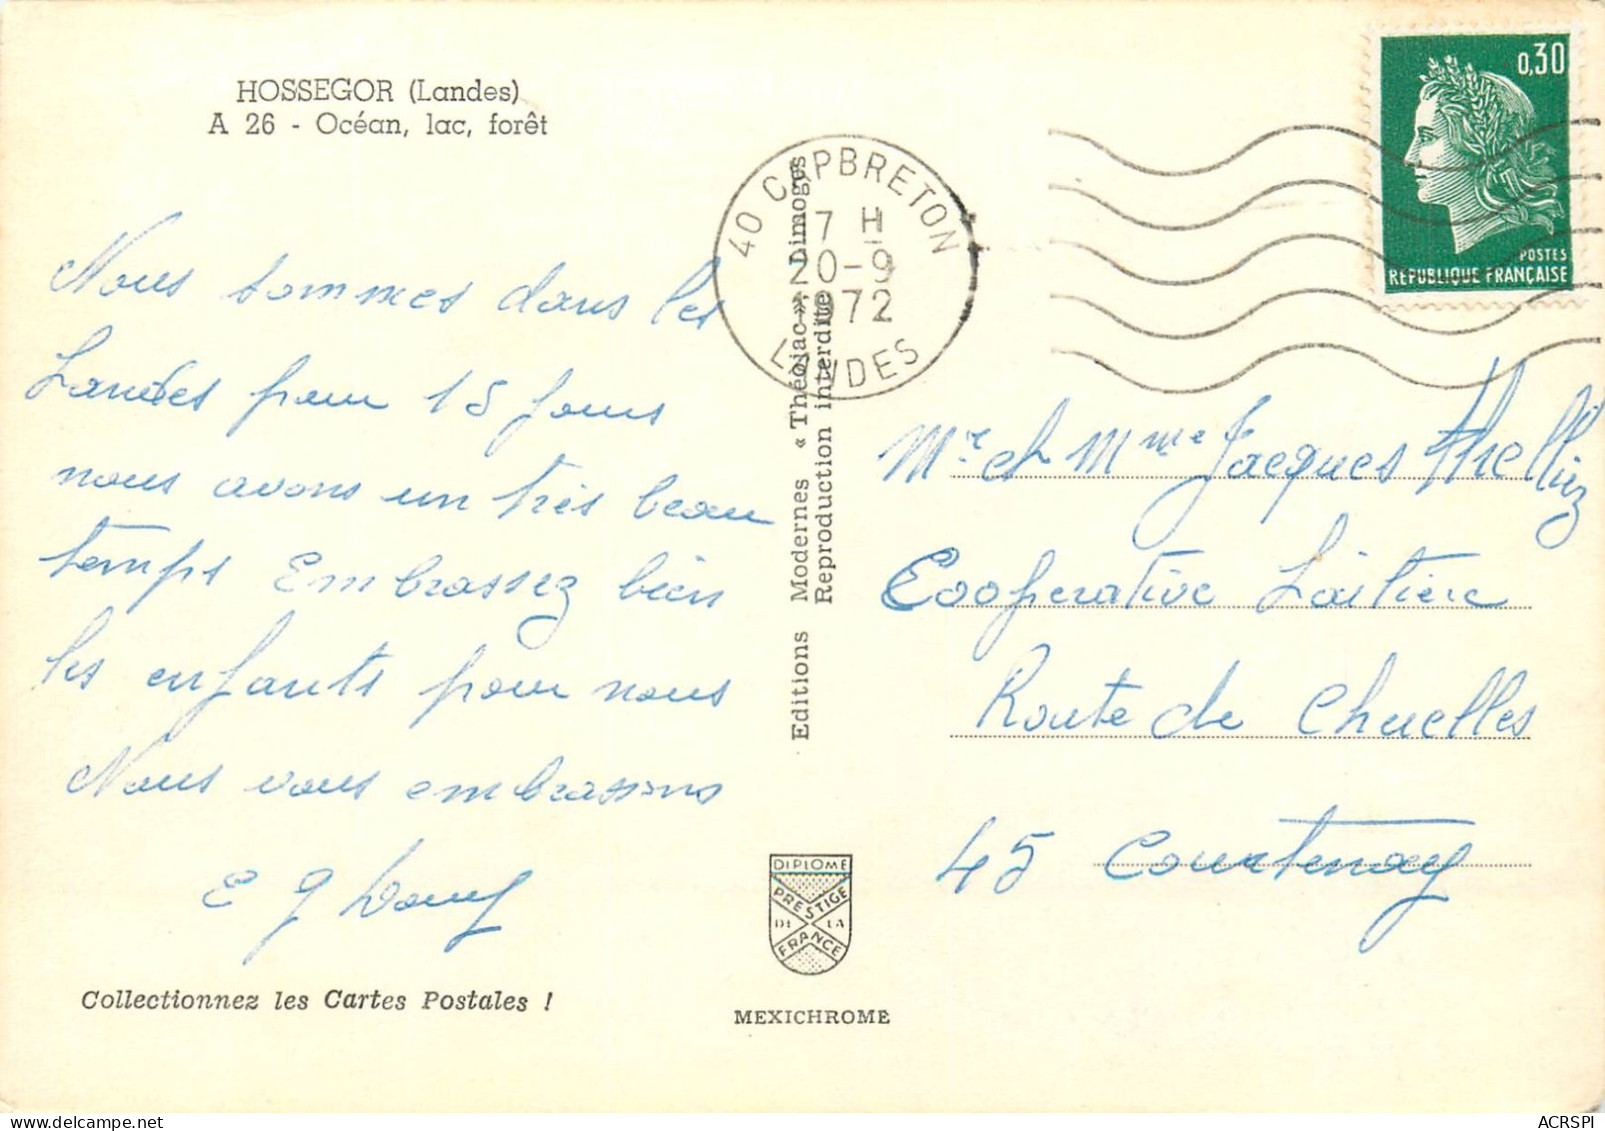 HOSSEGOR (Landes)
A 26 - Océan, lac, forêt
Nous sommes dans les
Landes pour 15 jours
nous avons un très beau
temps Embrassez bien
les enfants pour nous
Nous vous embrassons
E g
Collectionnez les Cartes Postales !
Editions Modernes « Théojac » Limoges
Reproduction interdite
DIPLOME
PRESTIGE
DE LA
FRANCE
MEXICHROME
40 CAPBRETON
7 H
20-9
1972
LANDES
0,30
POSTES
REPUBLIQUE FRANÇAISE
Mr et Mme Jacques
Cooperative Laitiere
Route de Chuelles
45 Courtenay
ACRSPI